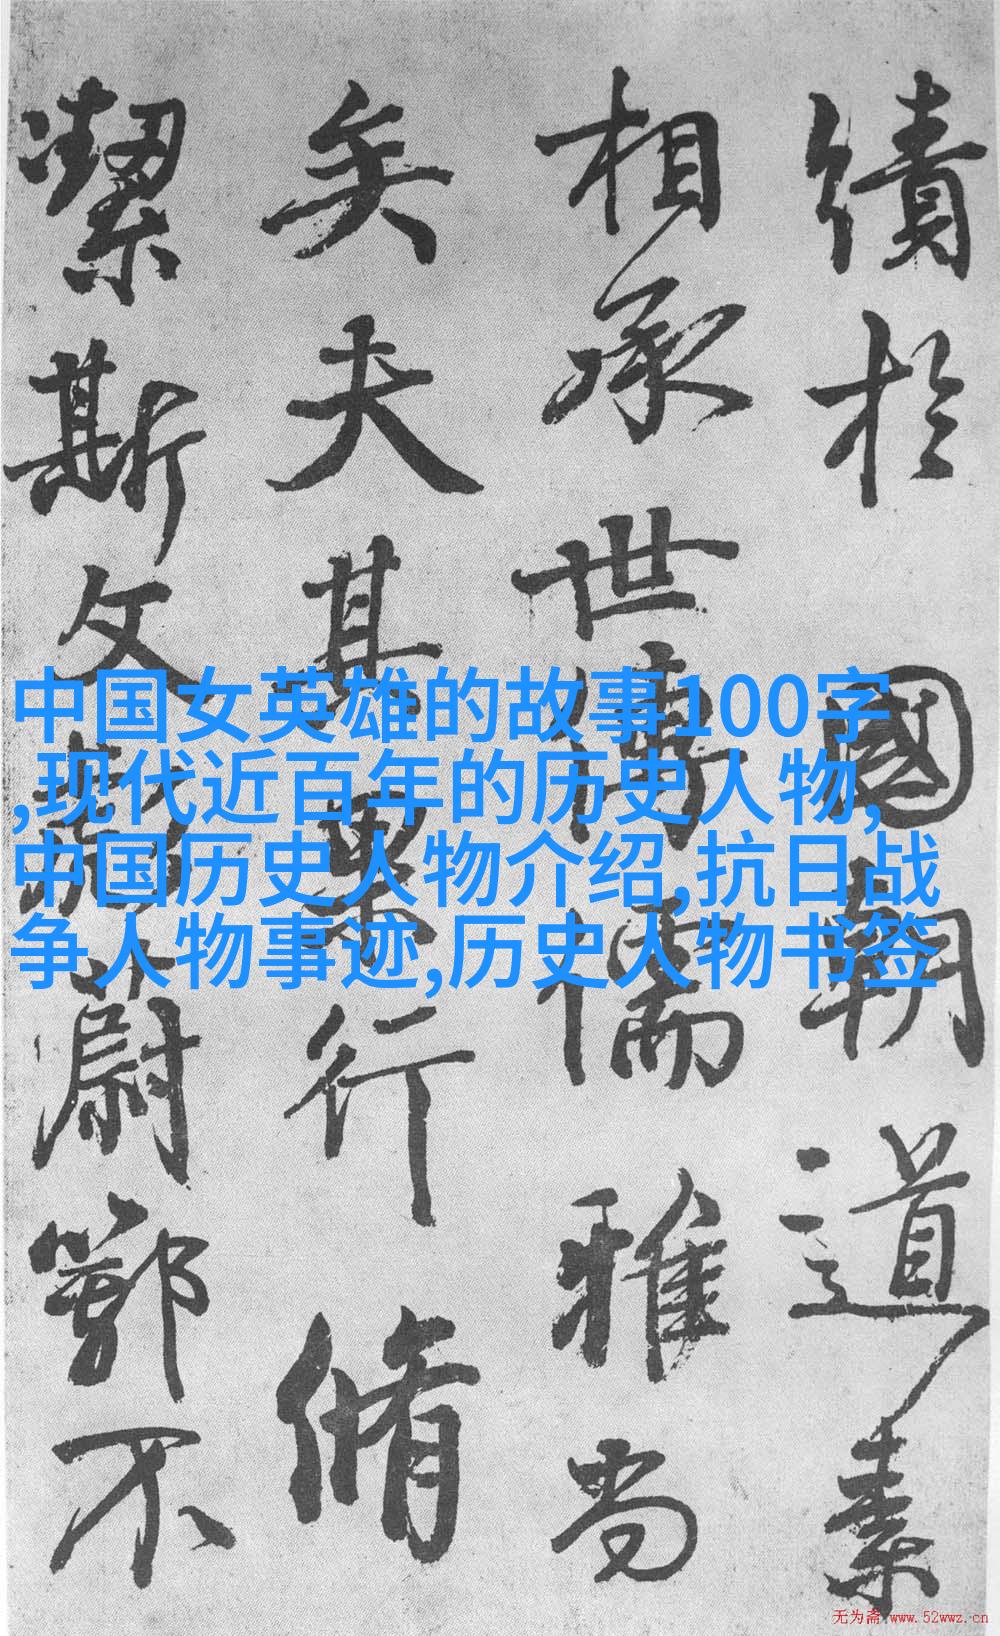 績於國朝道素
相承世傳儒雅尚
矣夫其果行脩
潔斯文彪蔚鄂不
中国女英雄的故事100字
,现代近百年的历史人物,
中国历史人物介绍,抗日战
争人物事迹,历史人物书签
无为斋 www.52wwz.cn